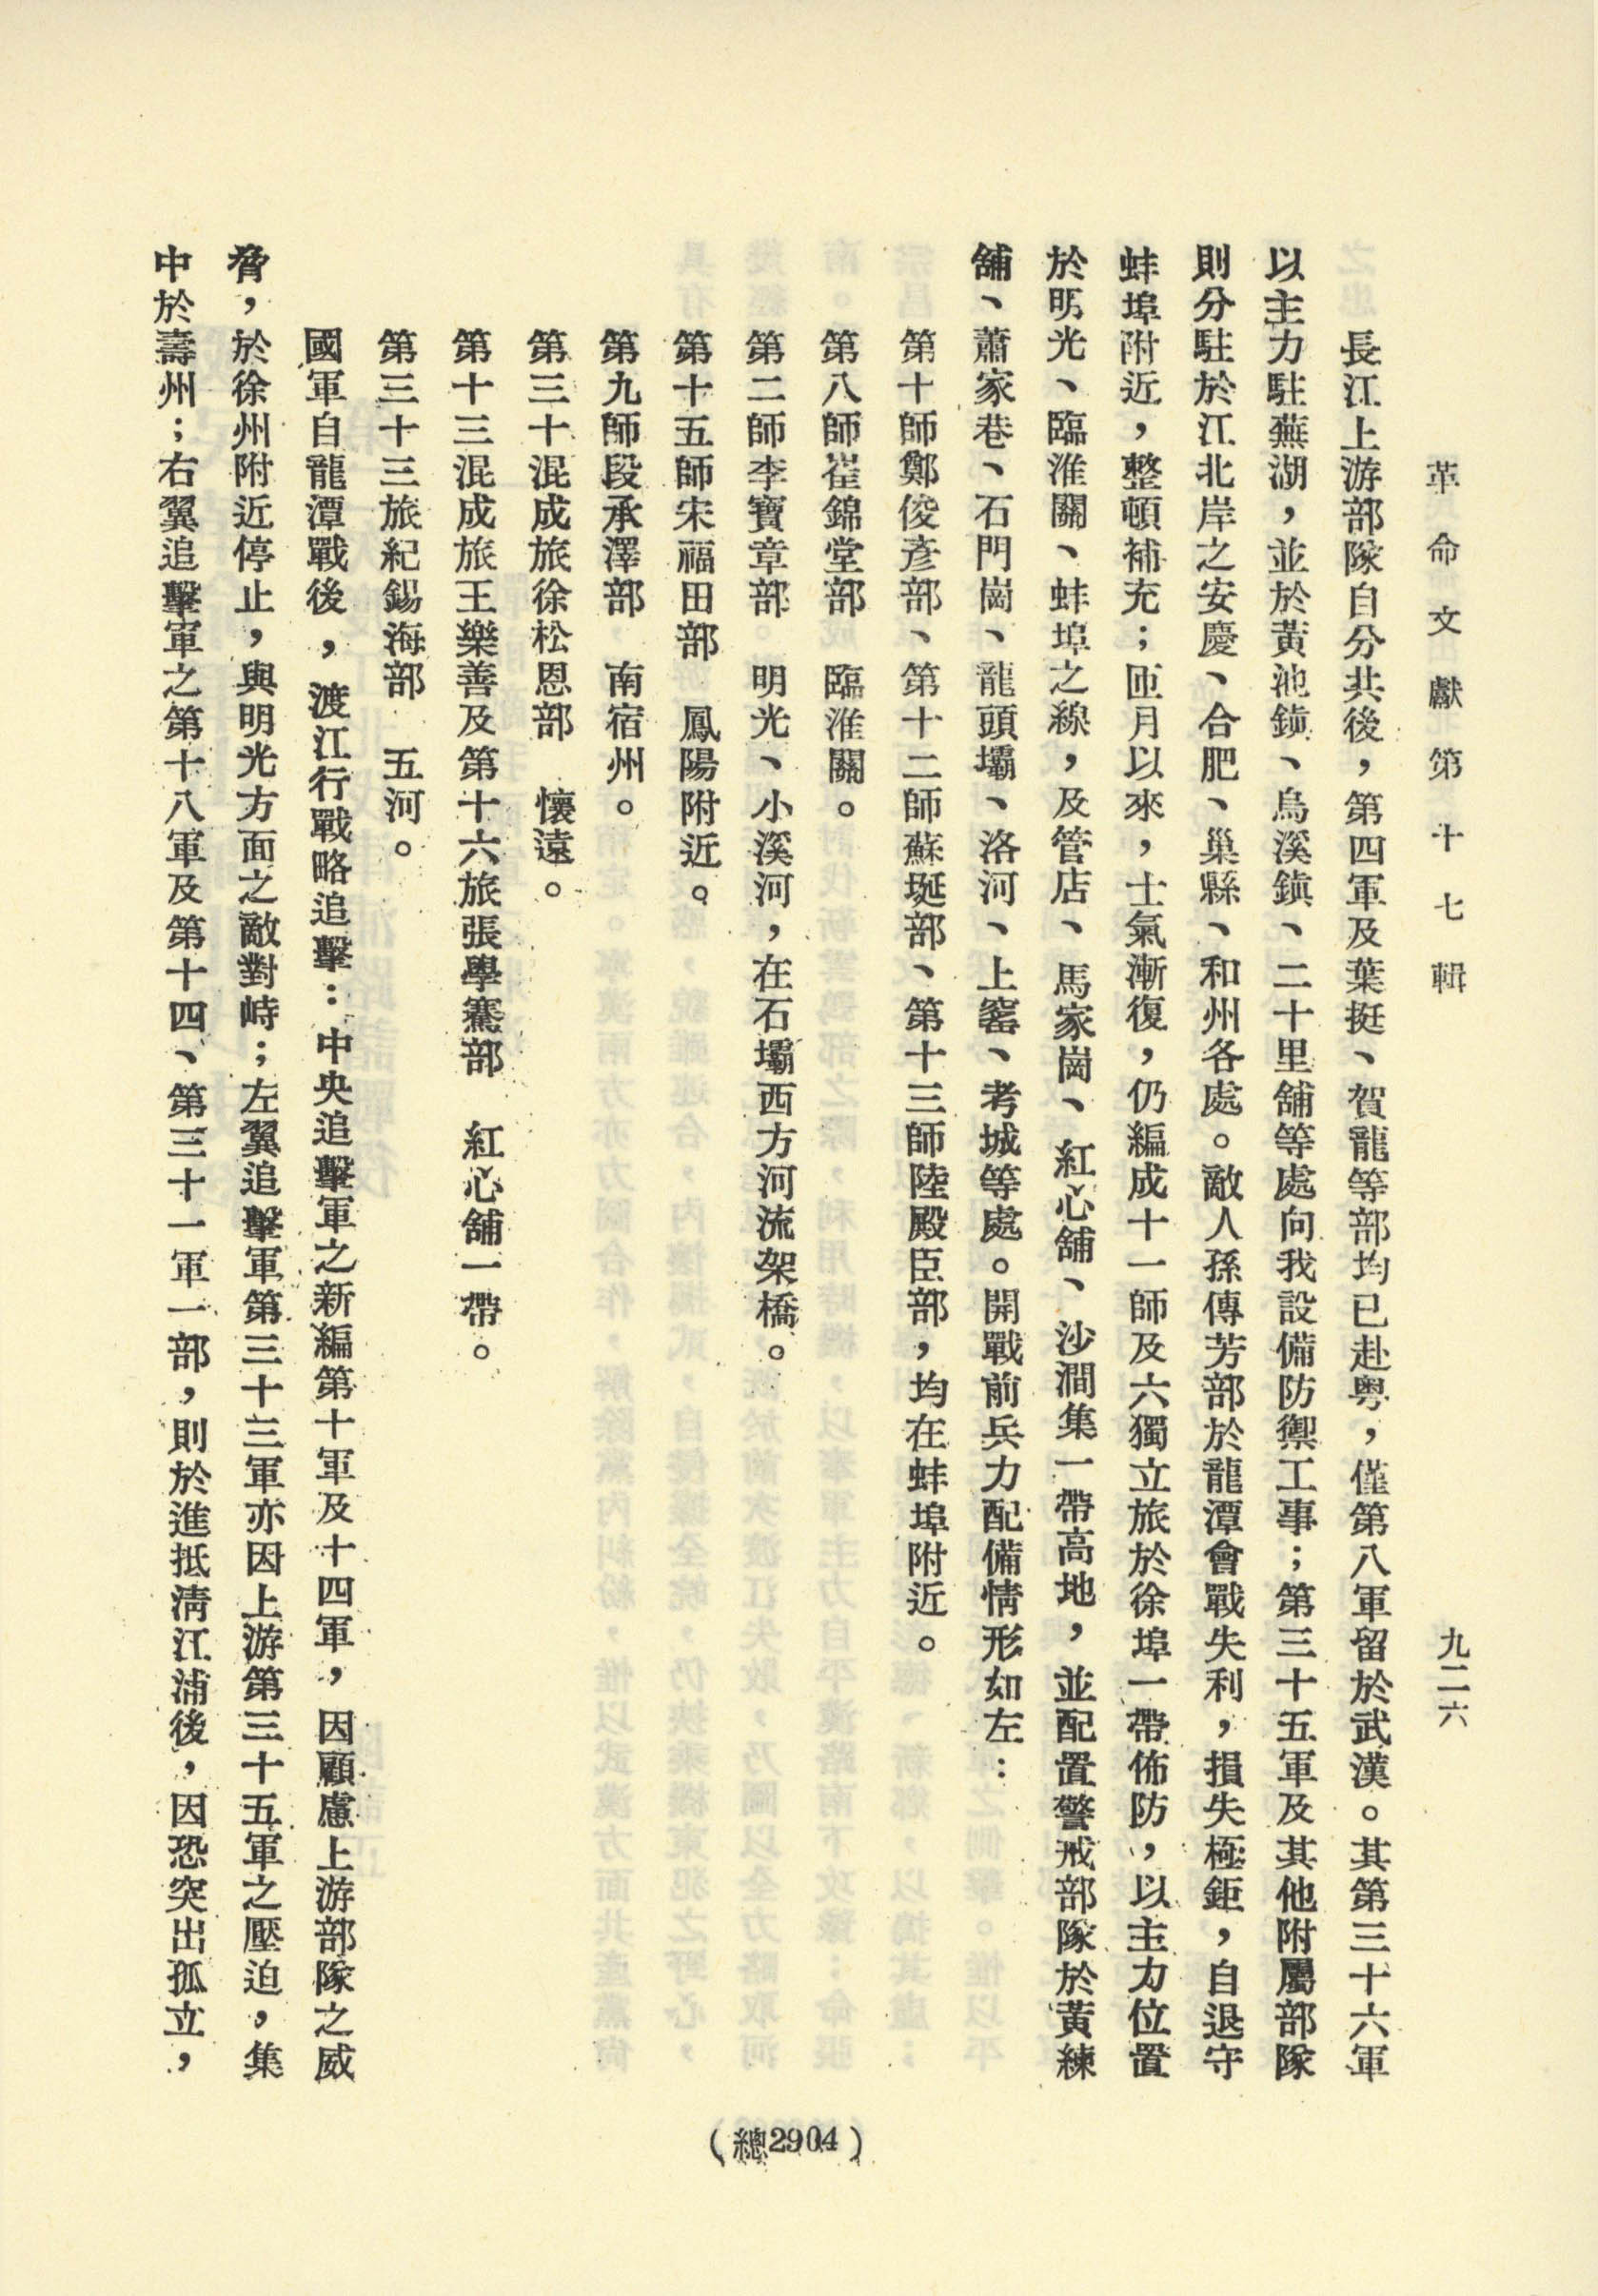 革命文獻第十七輯
九二六
長江上游部隊自分共後，第四軍及葉挺、賀龍等部均已赴粤，僅第八軍留於武漢。其第三十六軍
以主力駐蕪湖，並於黃池鎮、烏溪鎮、二十里舖等處向我設備防禦工事；第三十五軍及其他附屬部隊
則分駐於江北岸之安慶、合肥、巢縣、和州各處。敵人孫傳芳部於龍潭會戰失利，損失極鉅，自退守
蚌埠附近，整頓補充；匝月以來，士氣漸復，仍編成十一師及六獨立旅於徐埠一帶佈防，以主力位置
於明光、臨淮關、蚌埠之線，及管店、馬家崗、紅心舖、沙澗集一帶高地，並配置警戒部隊於黃練
舖、蕭家巷、石門崗、龍頭壩、洛河、上窰、考城等處。開戰前兵力配備情形如左：
第十師鄭俊彥部、第十二師蘇埏部、第十三師陸殿臣部，均在蚌埠附近。
第八師崔錦堂部　臨淮關。
第二師李寶章部　明光、小溪河，在石壩西方河流架橋。
第十五師宋福田部　鳳陽附近。
第九師段承澤部　南宿州。
第三十混成旅徐松恩部　懷遠。
第十三混成旅王樂善及第十六旅張學騫部　紅心舖一帶。
第三十三旅紀錫海部　五河。
國軍自龍潭戰後，渡江行戰略追擊：中央追擊軍之新編第十軍及十四軍，因顧慮上游部隊之威
脅，於徐州附近停止，與明光方面之敵對峙；左翼追擊軍第三十三軍亦因上游第三十五軍之壓迫，集
中於壽州；右翼追擊軍之第十八軍及第十四、第三十一軍一部，則於進抵淸江浦後，因恐突出孤立，
（總2904）